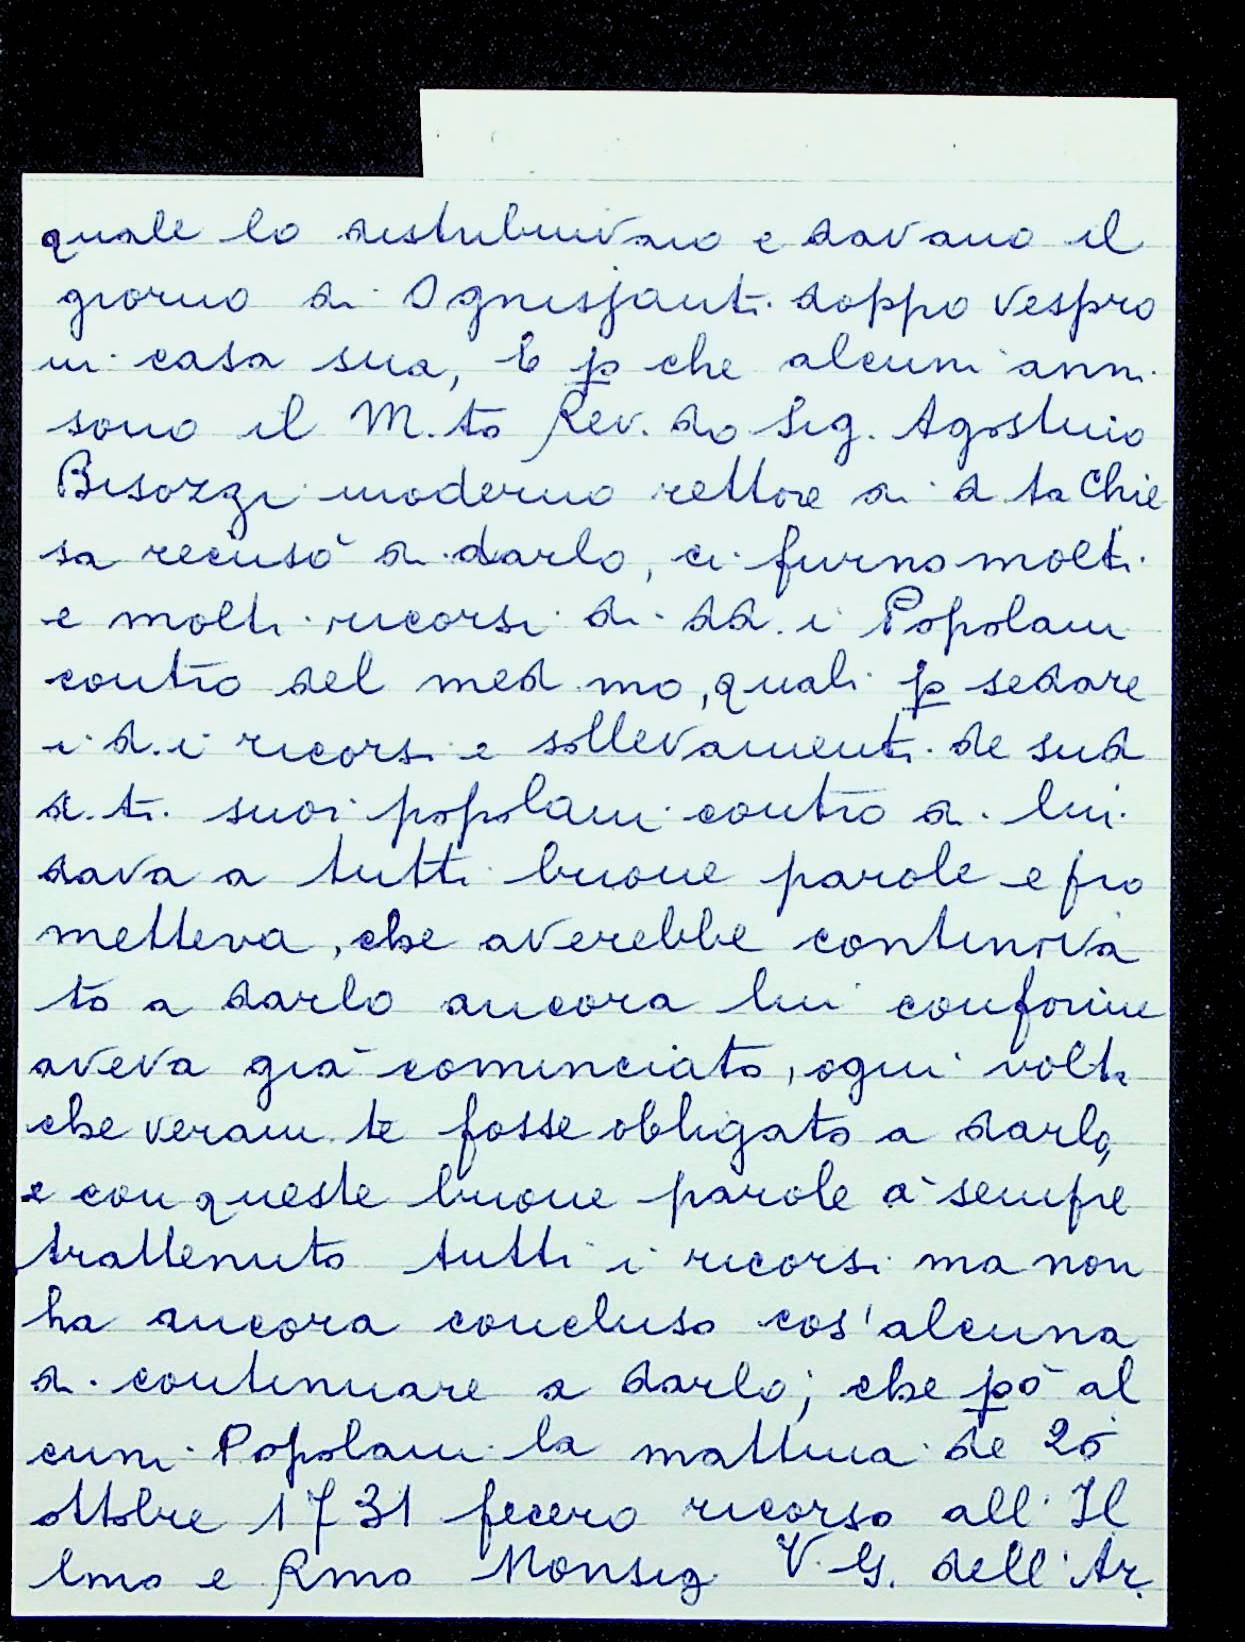 quale lo distribuivano e davano il
giorno di Ognisanti doppo vespro
in casa sua, E p che alcuni anni
sono il M.to Rev.do Sig. Agostino
Bisozzi moderno rettore di d ta Chie
sa recusò di darlo, ci furno molti
e molti ricorsi di dd. i Popolani
contro del med mo, quali p sedare
i d.i ricorsi e sollevamenti de sud
d.ti suoi popolani contro di lui
dava a tutti buone parole e pro
metteva, che averebbe
to a darlo ancora lui conforme
aveva già cominciato, ogni volta
che veram.te fosse obligato a darlo,
e con queste buone parole à sempre
trattenuto tutti i ricorsi ma non
ha ancora concluso cos'alcuna
di continuare a darlo; che pò al
cuni Popolani la mattina de
ottobre 1731 fecero ricorso all'Il
lmo e Rmo Monsig V. G. dell'Ar.